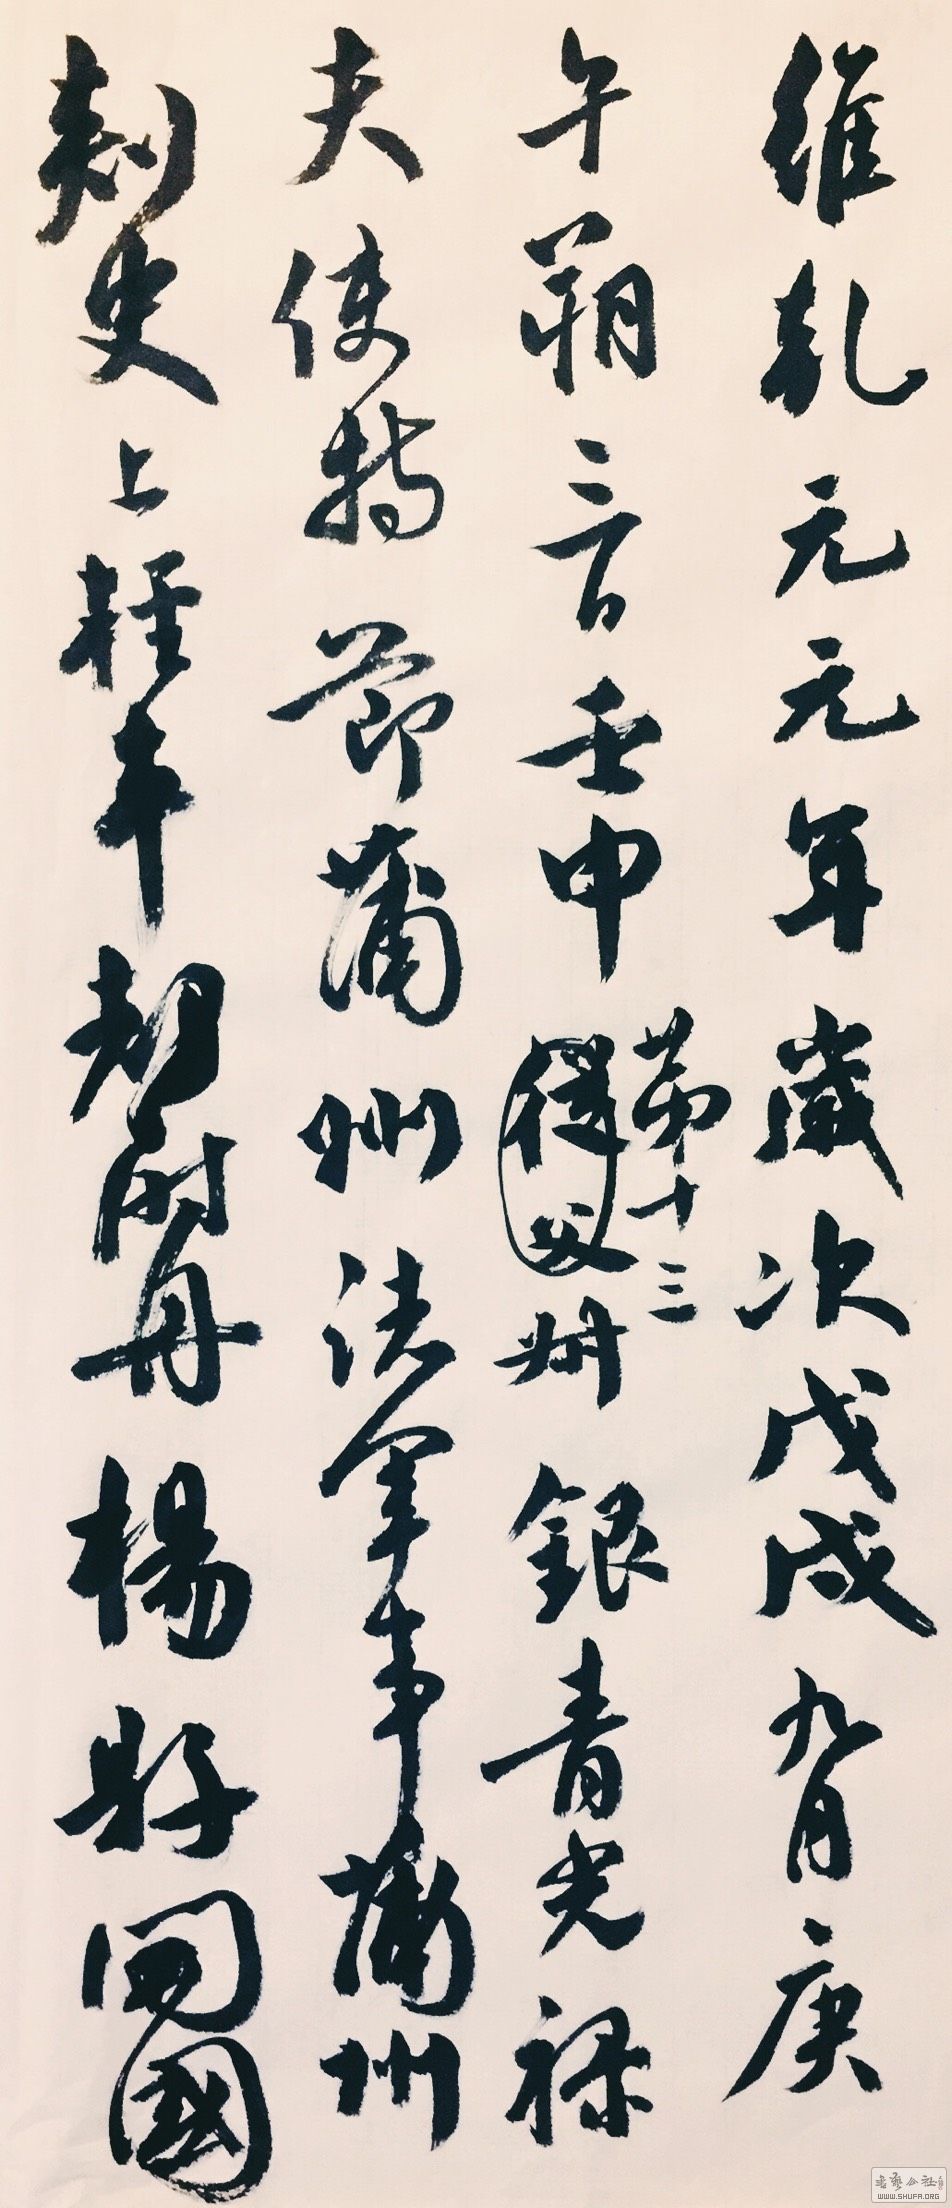 維乾元元年歲次戊戌九月庚
午朔三日壬申第十三從父叔銀青光祿
夫使持節蒲州諸軍事蒲州
刺史上輕車都尉丹楊縣開國
書藝公社
WWW.SHUFA.ORG